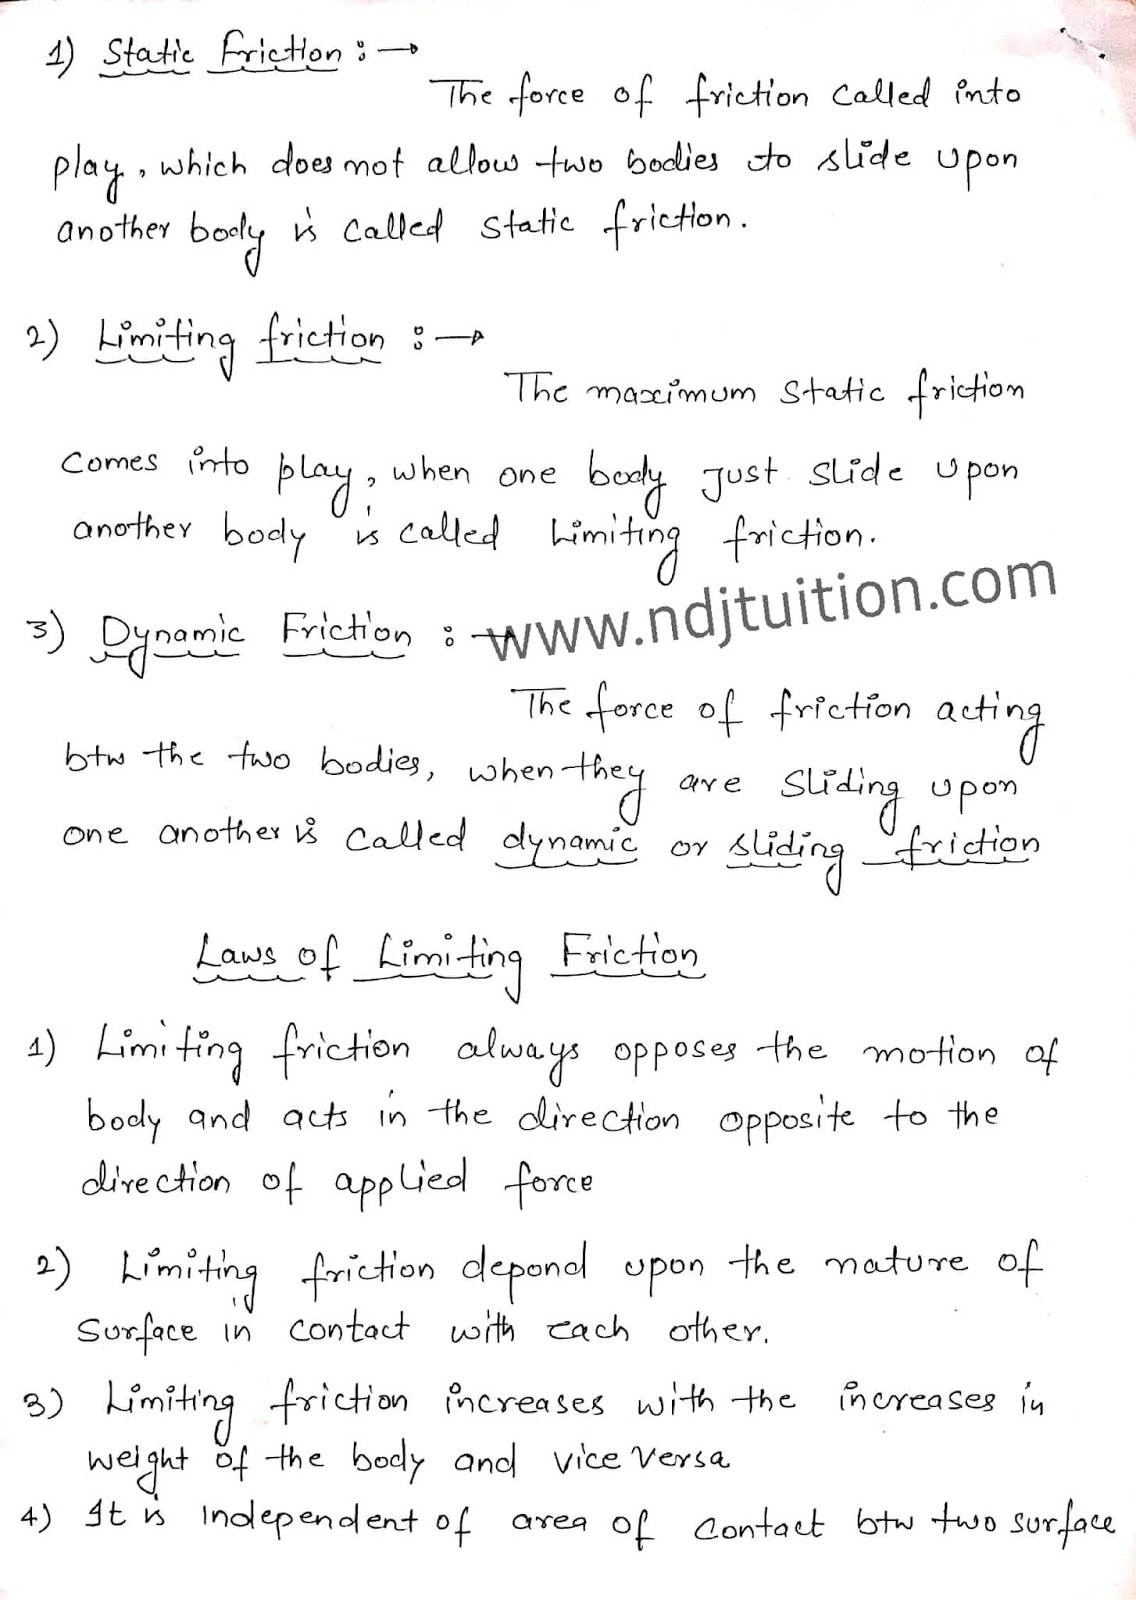 1) Static Friction :→
The force of friction called into
play, which does not allow two bodies to slide upon
another body is called static friction.
2) Limiting friction :→
The maximum static friction
comes into play, when one body Just slide upon
another body is called Limiting friction.
www.ndjtuition.com
3) Dynamic Friction :→
The force of friction acting
btw the two bodies, when they are sliding upon
one another is called dynamic or sliding friction
Laws of Limiting Friction
1) Limiting friction always opposes the motion of
body and acts in the direction opposite to the
direction of applied force
2) Limiting friction depond upon the nature of
surface in contact with each other.
3) Limiting friction increases with the increases in
weight of the body and vice versa
4) It is independent of area of contact btw two surface